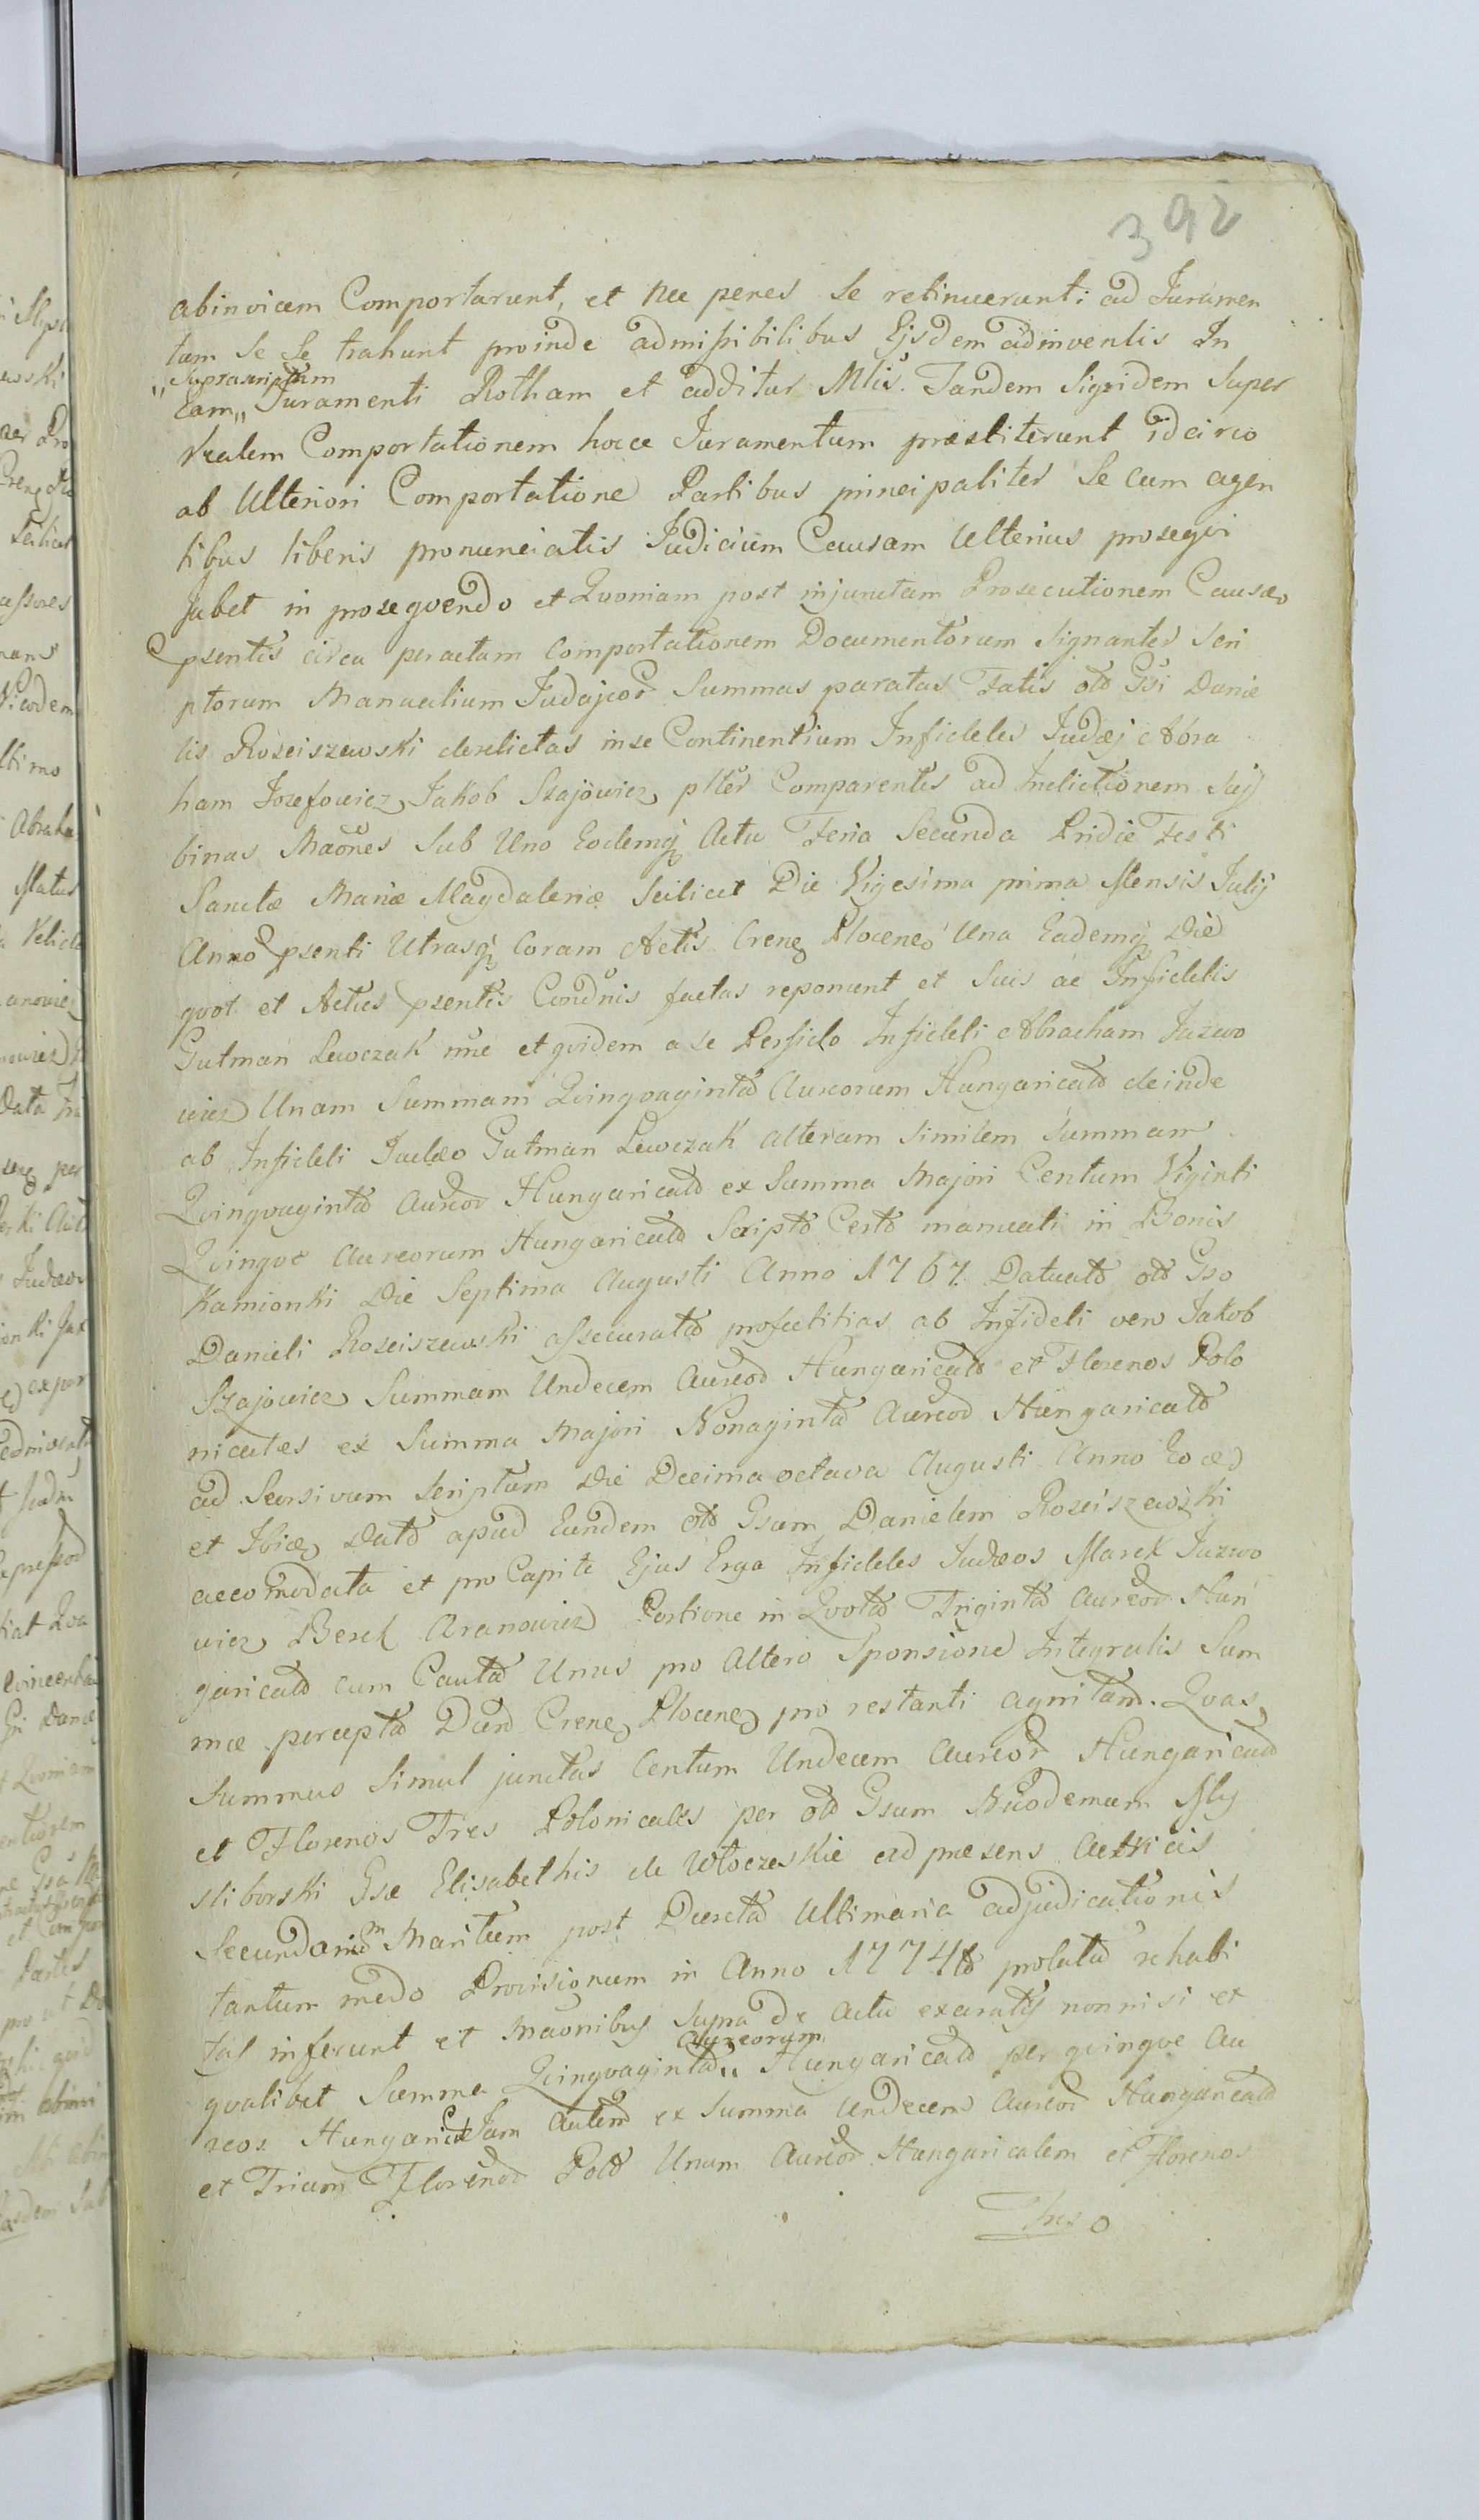 392
abinvicem Comportarunt, et nec penes se retinuerunt: ad Juramen
tum se se trahunt proinde admissibilibus Ejsdem adinventis In
"Suprascriptum
Eam" Juramenti Rotham et additur Mtis. Tandem Siqvidem Super
realem Comportationem hocce Juramentum præstiterunt idcirco
ab Ulteriori Comportatione Partibus principaliter Se cum agen
tibus liberis pronunciatis Judicium Causam Ulterius proseqvi
Jubet in proseqvendo et Qvoniam post injunctam Prosecutionem Causæ
psentis circa peractam Comportationem Documentorum Signanter Scri
ptorum Manualium Judajcor Summas paratas Fatis otd Gsi Danie
lis Rosciszewski derelictas inse Continentium Infideles Judæj Abra
ham Jozefowicz, Jakob Szajowicz, plter Comparentes ad Indictionem
binas Maones Sub Uno Eodemq Actu Feria Secunda Pridie Festi
Sanctæ Mariæ Magdalenæ Scilicet Die Vigesima prima Mensis Julij
Anno psenti Utrasq Coram Actis Crene Plocene Una Eademq Die
qvot et Actus psentis Condnis factas reponunt et Suis ac Infidelis
Gutman Lewczak nne et qvidem a se Perfido Infideli Abraham Juzwo
wicz Unam Summam Qvinqvaginta Aureorum Hungaricald deinde
ab Infideli Judæo Gutman Lewczak alteram Similem Summam
Qvinqvaginta Aureor Hungaricald ex Summa Majori Centum Viginti
Qvinqve Aureorum Hungaricald Scripto Certo manuali in Bonis
Kamionki Die Septima Augusti Anno 1767 Datuato otd Gso
Danieli Rosciszewski assecurata profectitias ab Infideli vero Jakob
Szajowicz Summam Undecem Aureor Hungaricald et Florenos Polo
nicales ex Summa Majori Nonaginta Aureor Hungaricald
ad Seorsivum Scriptum Die Decima octava Augusti Anno Eod
et Ibid Dato apud Eundem otd Gsum Danielem Rosciszewski
accomodata et pro Capite Ejus Erga Infideles Judæos Marek Juzwo
wicz, Berek Aranowicz Portione in Qvota Triginta Aureor Hun
garicald cum Cauta Unus pro Altero Sponsione Integralis Sum
mæ percepta Crene Plocene pro restanti agnitam. Qvas
Summas Simul junctas Centum Undecem Aureor Hungaricald
et Florenos Tres Polonicales per otd Gsum Nicodemum Mły
stiborski Gsæ Elisabethis de Włoczeskie ad præsens Actricis
Secundarium Maritum post Decreta Ultimaria adjudicationis
tantum modo Provisionum in Anno 1774to prolata rehabi
tas inferunt et Maonibus Supra de Actu exaratis nonnisi et
Aureorum
qvalibet Summa Qvinqvaginta" Hungaricald per qvinqve Au
reos Hungaric Jam Autem ex Summa Undecem Aureor Hungaricald
et Trium Florenor Pold Unum Aureor Hungaricalem et Florenos
Tres